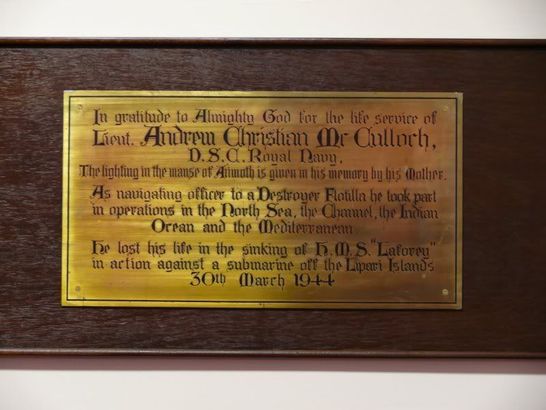 In gratitude to Almighty God for the life service of
Lieut. Andrew Christian Mc Culloch,
D.S.C. Royal Navy.
The lighting in the manse of Armoth is given in his memory by his Mother.
As navigating officer to a Destroyer Flotilla he took part
in operations in the North Sea, the Channel, the Indian
Ocean and the Mediterranean
He lost his life in the sinking of H.M.S. "Laforey"
in action against a submarine off the Lipari Islands
30th March 1944